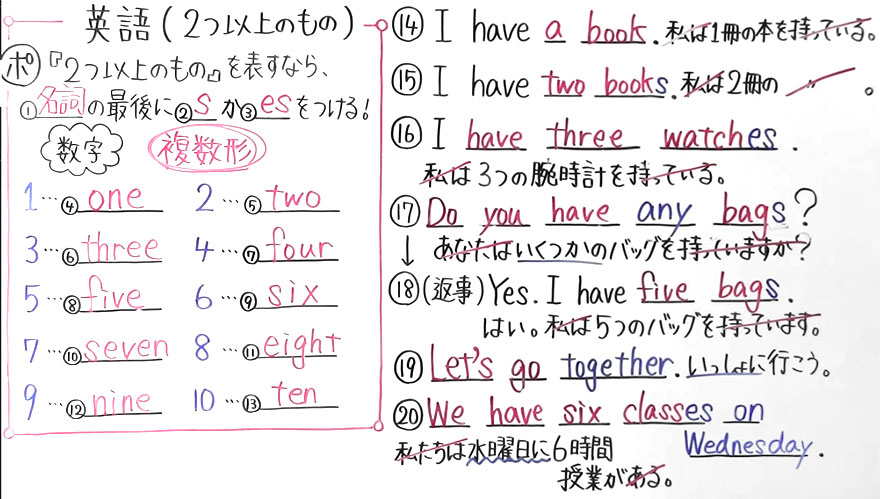 英語(2つ以上のもの)
ポ『2つ以上のもの』を表すなら、
①名詞の最後に②sか③esをつける!
数字 複数形
1…④one 2…⑤two
3…⑥three 4…⑦four
5…⑧five 6…⑨six
7…⑩seven 8…⑪eight
9…⑫nine 10…⑬ten
⑭I have a book. 私は1冊の本を持っている。
⑮I have two books. 私は2冊の 〃 。
⑯I have three watches.
私は3つの腕時計を持っている。
⑰Do you have any bags?
↓ あなたはいくつかのバッグを持っていますか?
⑱(返事)Yes. I have five bags.
はい。私は5つのバッグを持っています。
⑲Let's go together. いっしょに行こう。
⑳We have six classes on
Wednesday.
私たちは水曜日に6時間
授業がある。